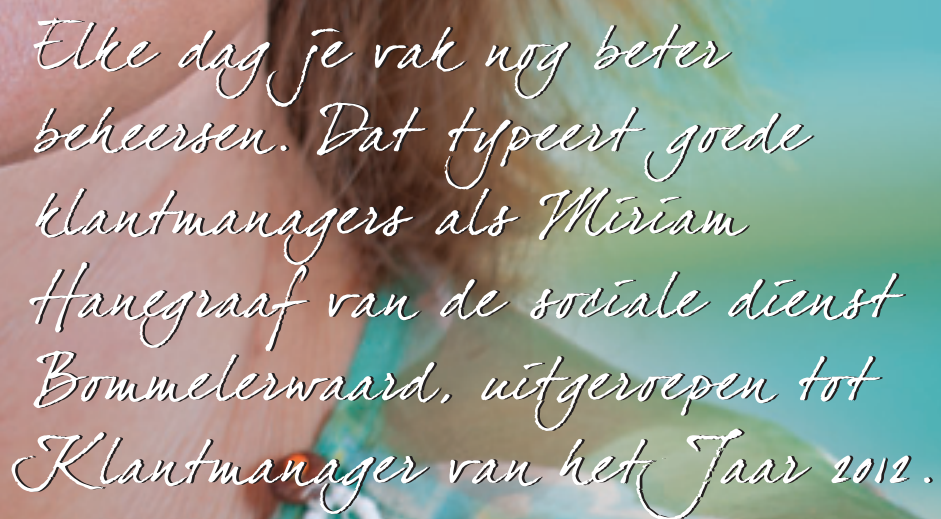 Elke dag je vak nog beter
beheersen. Dat typeert goede
klantmanagers als Miriam
Hanegraaf van de sociale dienst
Bommelerwaard, uitgeroepen tot
Klantmanager van het Jaar 2012.